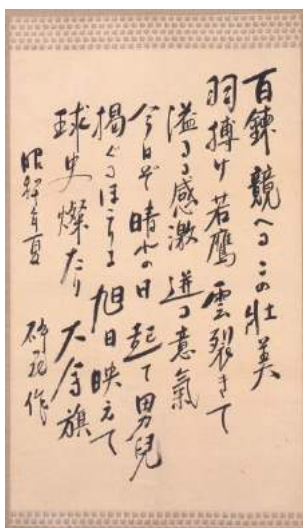 百錬競へるこの壮美
羽搏け若鷹雲裂きて
溢るる感激迸る意氣
今日ぞ晴れの日起て男兒
掲ぐるほこりに旭日映えて
球史燦たり大會旗
昭和年夏
作